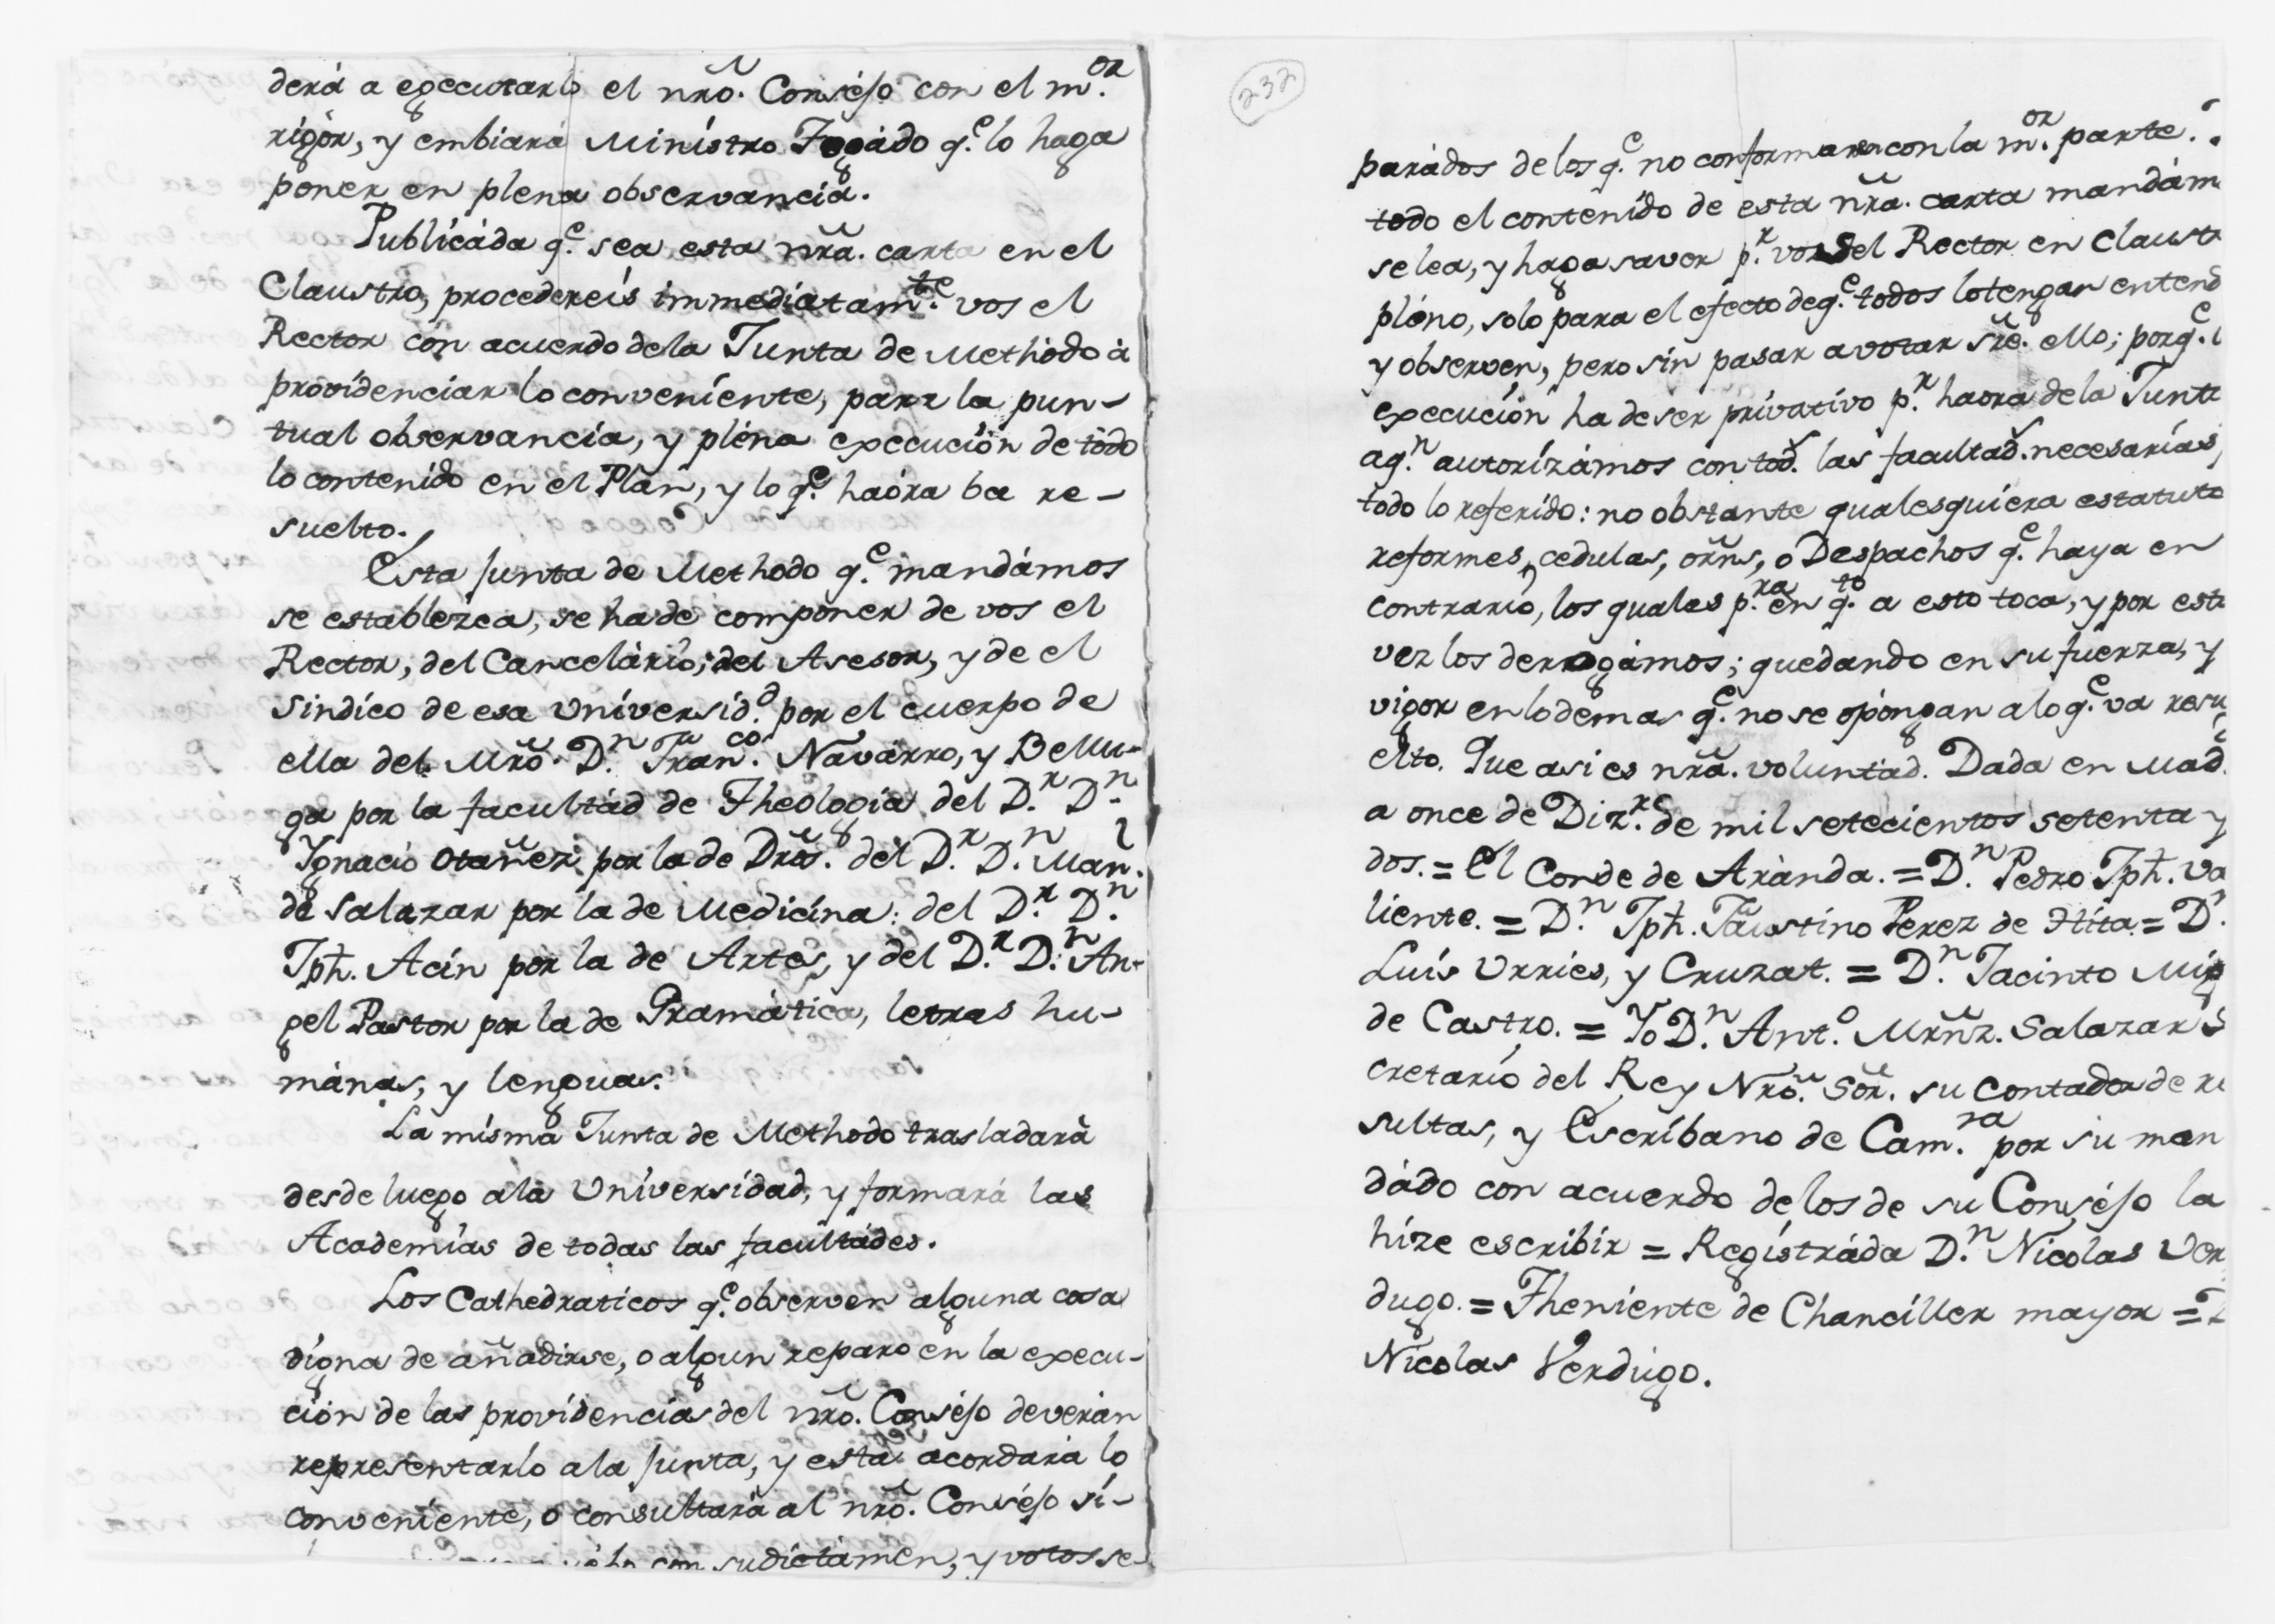 derá a egecutarlo el nrõ. Conséjo con el m.or
rigór, y embiará Minístro Togádo q.e lo haga
poner en plena observancia.
Publicáda q.e sea esta nrã. carta en el
Claustro, procedereís immediatam.te vos el
Rector con acuerdo dela Junta de Methòdo à
providenciar lo conveníente, para la pun-
tual observancia, y pléna execución de tòdo
lo contenído en el Plan, y lo q.e haóra ba re-
suelto.
Esta junta de Methodo q.e mandámos
se establezca, se hade componer de vos el
Rector, del Cancelário, del Asesor, y de el
Sindico de esa Universid.d por el cuerpo de
ella del Mrõ. D.n Fran.co Navárro, y Bellu-
ga por la facultád de Theología del D.r D.n
Ygnacio Otañez por la de Drõs. del D.r D.n Man.l
de Salazar por la de Medicína: del D.r D.n
Jph. Acín por la de Artes, y del D.r D.n An-
gel Pastor por la de Gramática, letras hu-
mánas, y lenguas.
La mísma Junta de Methodo trasladará
desde luego ala Universidad, y formará las
Academías de todas las facultádes.
Los Cathedraticos q.e observen alguna cosa
dígna de añadirse, o algun reparo en la execu-
ción de las providencias del nrõ. Conséjo deverán
representarlo ala junta, y esta acordará lo
conveníente, o consultará al nrõ. Conséjo sí-
con su dictámen, y votos se-
232
parádos de los q.e no conformaren con la m.or parte.
todo el contenído de ésta nrã. carta mandám
se lea, y haga saver p.r vos del Rector en Claust
pléno, solo para el efecto de q.e todos lo tengan entend
y observen, pero sin pasar a votar sre. ello; porq.e l
execución ha de ser privatívo p.r haora de la Junta
aq.n autorízámos con tod.s las facultad.s necesarías
todo lo referído: no obstante qualesquiera estatuto
reformes, cedulas, orñs, o Despachos q.e haya en
contrario, los quales p.ra en q.to a esto toca, y por esta
vez los derrogámos; quedando en su fuerza, y
vigor en lo demas q.e no se opóngan alo q.e va resu
elto. Que asi es nrã. voluntad. Dada en Mad
a once de Diz.re de mil setecientos setenta y
dos. = El Conde de Aránda. = D.n Pedro Jph. Va
liente. = D.n Jph. Faustino Perez de Hita = D.n
Luís Urries, y Cruzat. = D.n Jacinto Mig
de Castro. = Yo D.n Ant.o Mrñz. Salazar S
cretarío del Rey Nrõ. Sõr. su Contador de re
sultas, y Escríbano de Cam.ra por su man
dádo con acuerdo de los de su Conséjo la
híze escribir = Regístráda D.n Nicolas Ver
dugo. = Theniente de Chancíller mayor =
Nicolas Verdugo.